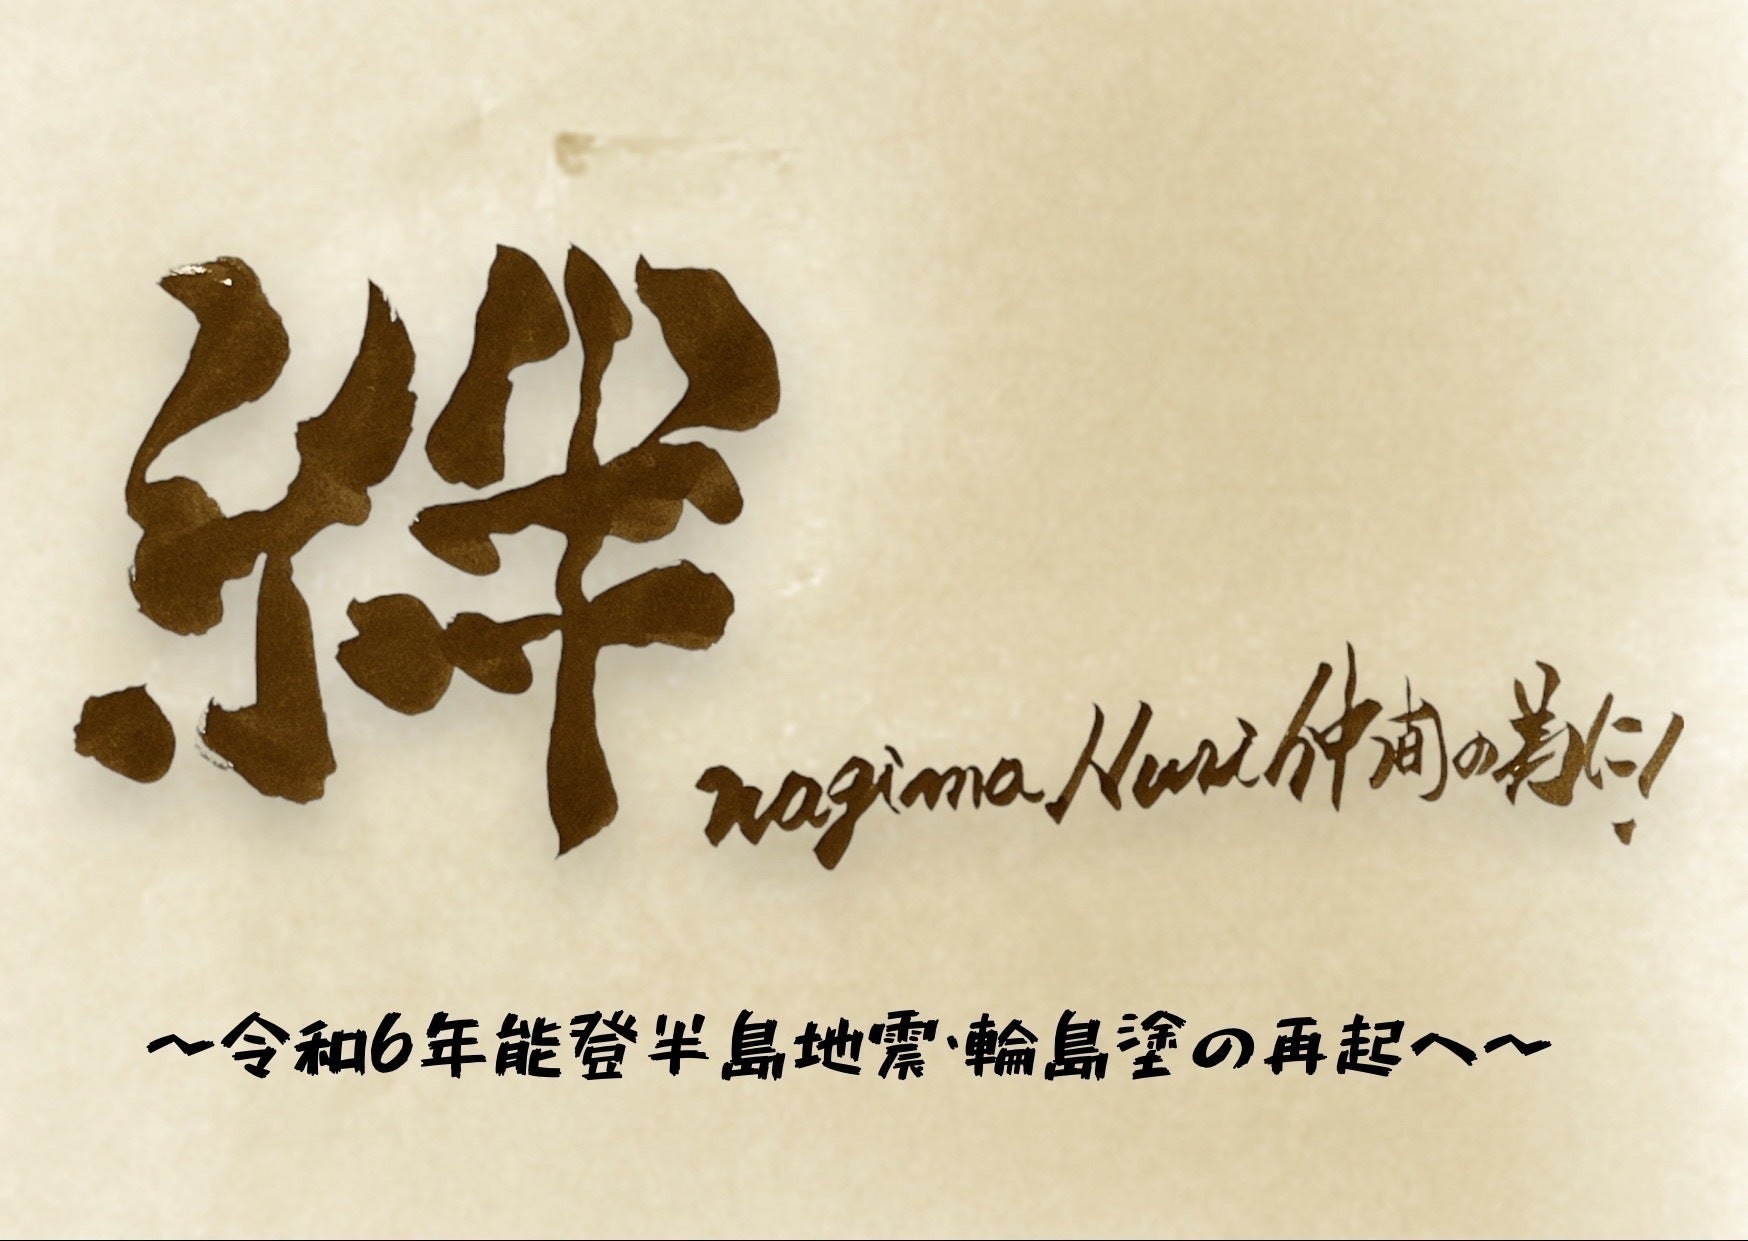 絆
nagima Nuri 仲間の為に!
~令和6年能登半島地震・輪島塗の再起へ~